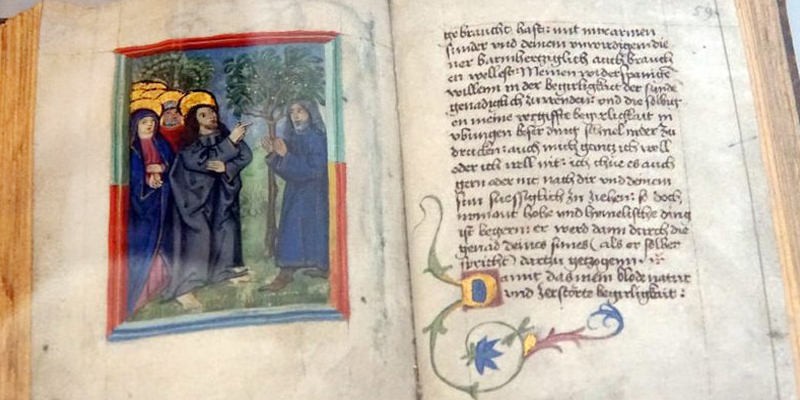 59
gebraucht hast: mit mir armen
sunder vnd deinem vnwirdigen die
ner barmhertziglich auch brauch
en wellest: Meinen widerspanige
willenn in der begirligkait der sunde
genadigclich zu wenden: vnd die selbig
en meine vergiffte begirligkait in
vbungen beser ding schnel nider zu
drucken: auch mich gantz ich woll
oder ich woll nit: ich thue es auch
gern oder nit nach dir vnd deinem
sun suessiglich zu ziehen: so doch
niemant hohe vnd himelische ding
ist begern: er werd dann durch die
genad deines sunes (als er selber
spricht) dartzu getzogenn:
Damit das mein blode natur
vnd zerstorte begirligkait: